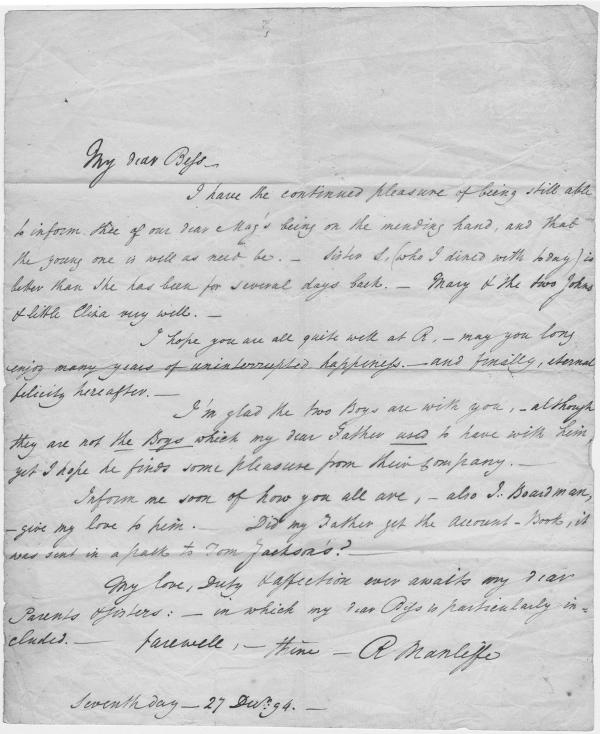 My dear Bess
I have the continued pleasure of being still able
to inform thee of our dear Mag's being on the mending hand, and that
the young one is well as need be. – Sister S, (who I dined with to day) is
better than she has been for several days back. – Mary & the two Johns
& little Eliza very well. –
I hope you are all quite well at R, – may you long
enjoy many years of uninterrupted happiness. – and finally, eternal
felicity hereafter. –
I'm glad the two Boys are with you, – although
they are not the Boys which my dear Father used to have with him,
yet I hope he finds some pleasure from their company. –
Inform me soon of how you all are, – also J. Boardman,
– give my love to him. – Did my Father get the Account-Book, it
was sent in a pack to Tom Jackson's? –
My love, Duty & affection ever awaits my dear
Parents & sisters: – in which my dear Bess is particularly in=
cluded. – farewell, – thine – R
Seventh day – 27 Decr. 94. –